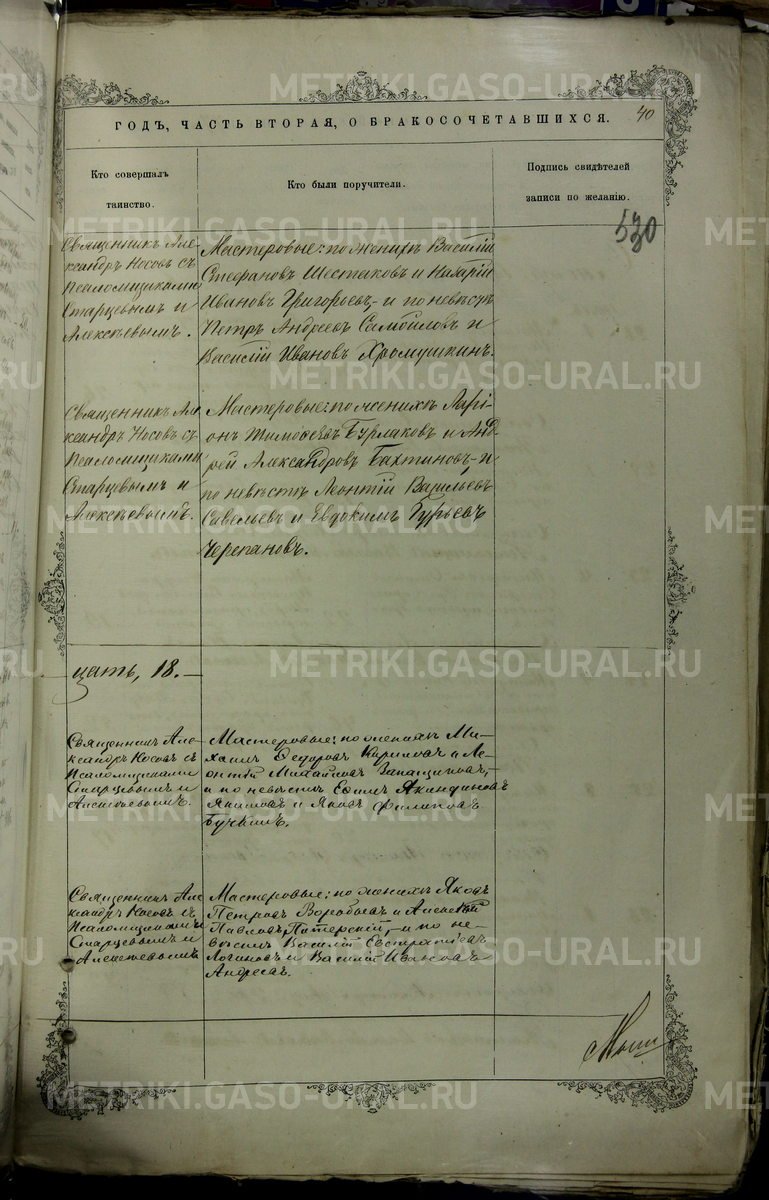 METRIKI.GASO-URAL.RU
ГОДЪ, ЧАСТЬ ВТОРАЯ, О БРАКОСОЧЕТАВШИХСЯ.
40
Кто совершалъ
таинство.
Кто были поручители.
Подпись свидѣтелей
записи по желанію.
530
Священникъ Але-
ксандръ Носовъ съ
Псаломщиками
Старцевымъ и
Алексѣевымъ.
Мастеровые: по женихѣ Василій
Стефановъ Шестаковъ и Назарій
Ивановъ Григорьевъ, и по невѣстѣ
Петръ Андреевъ Самойловъ и
Василій Ивановъ Хромушкинъ.
Священникъ Але
ксандръ Носовъ съ
Псаломщиками
Старцевымъ и
Алексѣевымъ.
Мастеровые: по женихѣ Ларі-
онъ Тимофеевъ Бурлаковъ и Анд-
рей Александровъ Бахтиновъ, и
по невѣстѣ Леонтій Васильевъ
Савельевъ и Евдокимъ Гурьевъ
Черепановъ.
цать, 18.
Священникъ Але-
ксандръ Носовъ съ
Псаломщиками
Старцевымъ и
Алексѣевымъ.
Мастеровые: по женихѣ Ми-
хаилъ Ѳедоровъ и Ле-
онтій Михайловъ
и по невѣстѣ Ефимъ Акиндиновъ
Якимовъ и Яковъ Филиповъ
Бучкинъ.
Священникъ Але
ксандръ Носовъ съ
Псаломщиками
Старцевымъ и
Алексѣевымъ
Мастеровые: по женихѣ Яковъ
Петровъ Воробьевъ и Алексѣй
Павловъ Питерскій, и по не-
вѣстѣ Василій Евстратіевъ
Логиновъ и Василій Ивановъ
Андреевъ.